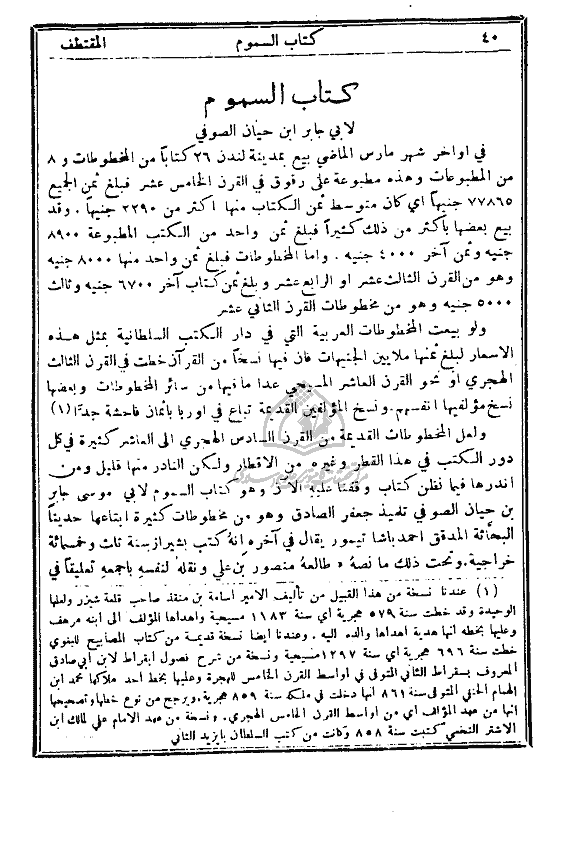 ٤٠ كتاب السموم المقتطف
كتاب السموم
لابي جابر ابن حيان الصوفي
في اواخر شهر مارس الماضي بيع بمدينة لندن ٢٦ كتاباً من المخطوطات و ٨
من المطبوعات وهذه مطبوعة على رقوق في القرن الخامس عشر فبلغ ثمن الجميع
٧٧٨٦٥ جنيهاً اي كان متوسط ثمن الكتاب منها اكثر من ٢٢٩٠ جنيهاً . وقد
بيع بعضها بأكثر من ذلك كثيراً فبلغ ثمن واحد من الكتب المطبوعة ٨٩٠٠
جنيه وثمن آخر ٤٠٠٠ جنيه . واما المخطوطات فبلغ ثمن واحد منها ٨٠٠٠ جنيه
وهو من القرن الثالث عشر او الرابع عشر وبلغ ثمن كتاب آخر ٦٧٠٠ جنيه وثالث
٥٠٠٠ جنيه وهو من مخطوطات القرن الثاني عشر
ولو بيعت المخطوطات العربية التي في دار الكتب السلطانية بمثل هذه
الاسعار لبلغ ثمنها ملايين الجنيهات فان فيها نسخاً من القرآن خطت في القرن الثالث
الهجري او نحو القرن العاشر المسيحي عدا ما فيها من سائر المخطوطات وبعضها
نسخ مؤلفيها انفسهم . ونسخ المؤلفين القديمة تباع في اوربا باثمان فاحشة جدًّا (١)
ولعل المخطوطات القديمة من القرن السادس الهجري الى العاشر كثيرة في كل
دور الكتب في هذا القطر وغيره من الاقطار ولكن النادر منها قليل ومن
اندرها فيما نظن كتاب وقفنا عليه الآن وهو كتاب السموم لابي موسى جابر
بن حيان الصوفي تلميذ جعفر الصادق وهو من مخطوطات كثيرة ابتاعها حديثاً
البحّاثة المدقق احمد باشا تيمور يقال في آخره انهُ كتب بشيراز سنة ثلث وخمسمائة
خراجية . وتحت ذلك ما نصهُ « طالعهُ منصور بن علي ونقلهُ لنفسهِ باجمعهِ تعليقاً في
(١) عندنا نسخة من هذا القبيل من تأليف الامير اسامة بن منقذ صاحب قلعة شيزر ولعلها
الوحيدة وقد خطت سنة ٥٧٩ هجرية اي سنة ١١٨٣ مسيحية واهداها المؤلف الى ابنه مرهف
وعليها بخطه انها هدية اهداها والده اليه . وعندنا ايضا نسخة قديمة من كتاب المصابيح للبغوي
خطت سنة ٦٩٦ هجرية اي سنة ١٢٩٧ مسيحية ونسخة من شرح فصول ابقراط لابن ابي صادق
المعروف بسقراط الثاني المتوفى في اواسط القرن الخامس للهجرة وعليها بخط احد ملاكها محمد ابن
الهمام الحنفي المتوفى سنة ٨٦١ انها دخلت في ملكه سنة ٨٥٩ هجرية . ويرجح من نوع خطها وتصحيحها
انها من عهد المؤلف اي من اواسط القرن الخامس الهجري . ونسخة من عهد الامام علي لمالك ابن
الاشتر النخعي كتبت سنة ٨٥٨ وكانت من كتب السلطان بايزيد الثاني